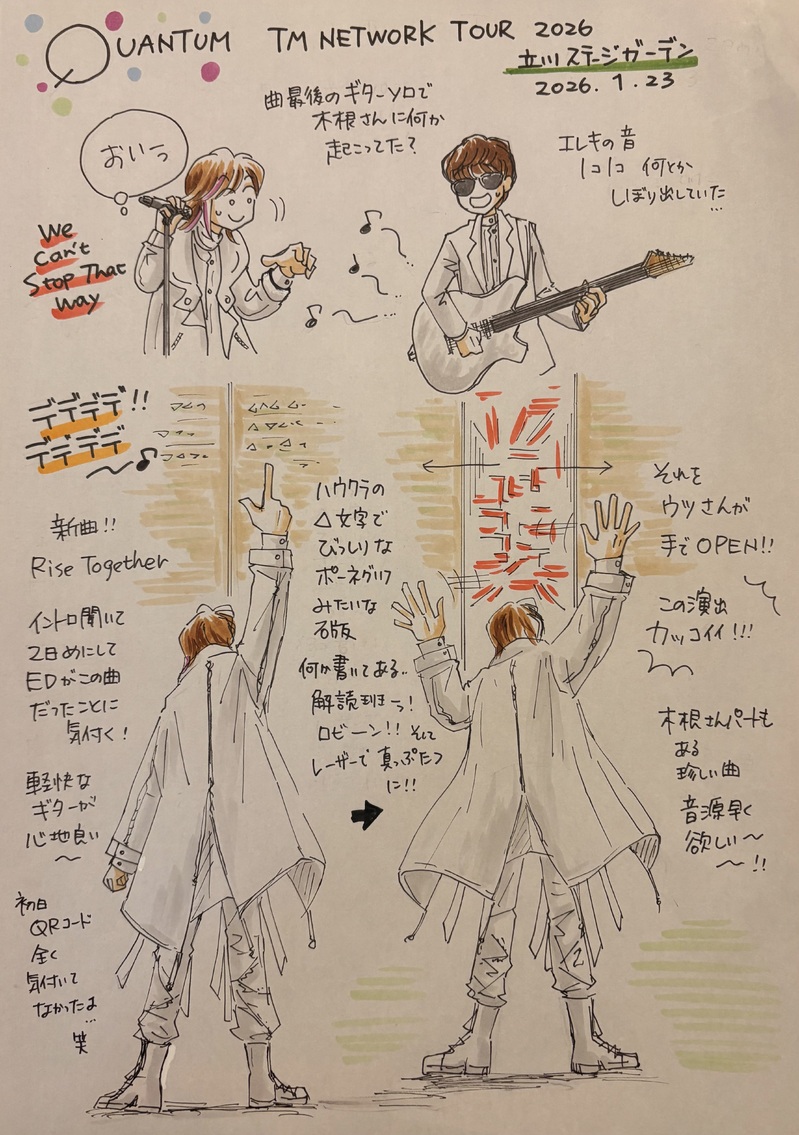 QUANTUM TM NETWORK TOUR 2026
立川ステージガーデン
2026.1.23
曲最後のギターソロで
木根さんに何か
起こってた?
おいっ
エレキの音
1コ1コ 何とか
しぼり出していた…
We
Can't
Stop That
Way
デデデデ!!
デデデデ
〜♪
新曲!!
Rise Together
イントロ聞いて
2日めにして
EDがこの曲
だったことに
気付く!
軽快な
ギターが
心地良い
〜
初日
QRコード
全く
気付いて
なかったよ…
笑
ハウクラの
△文字で
びっしりな
ポーネグリフ
みたいな
石版
何か書いてある..
解読班っ!
ロビーン!! そして
レーザーで真っぷたつ
に!!
それを
ウツさんが
手でOPEN!!
この演出
カッコイイ!!!
木根さんパートも
ある
珍しい曲
音源早く
欲しい〜
〜!!